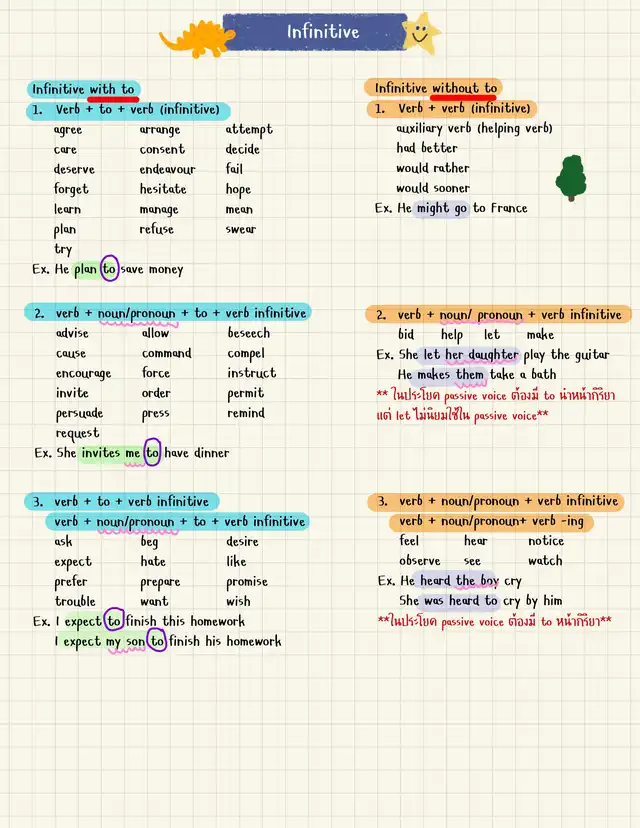 Infinitive
Infinitive with to
1. Verb + to + verb (infinitive)
agree arrange attempt
care consent decide
deserve endeavour fail
forget hesitate hope
learn manage mean
plan refuse swear
try
Ex. He plan to save money
2. verb + noun/pronoun + to + verb infinitive
advise allow beseech
cause command compel
encourage force instruct
invite order permit
persuade press remind
request
Ex. She invites me to have dinner
3. verb + to + verb infinitive
verb + noun/pronoun + to + verb infinitive
ask beg desire
expect hate like
prefer prepare promise
trouble want wish
Ex. I expect to finish this homework
I expect my son to finish his homework
Infinitive without to
1. Verb + verb (infinitive)
auxiliary verb (helping verb)
had better
would rather
would sooner
Ex. He might go to France
2. verb + noun/ pronoun + verb infinitive
bid help let make
Ex. She let her daughter play the guitar
He makes them take a bath
** ในประโยค passive voice ต้องมี to นำหน้ากิริยา
แต่ let ไม่นิยมใช้ใน passive voice**
3. verb + noun/pronoun + verb infinitive
verb + noun/pronoun+ verb -ing
feel hear notice
observe see watch
Ex. He heard the boy cry
She was heard to cry by him
**ในประโยค passive voice ต้องมี to หน้ากิริยา**